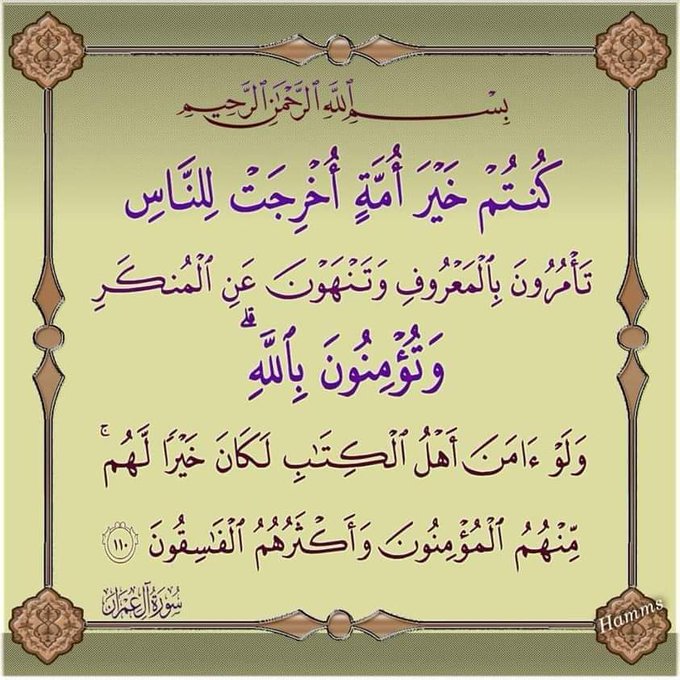 بِسْمِ ٱللَّهِ ٱلرَّحْمَٰنِ ٱلرَّحِيمِ
كُنتُمْ خَيْرَ أُمَّةٍ أُخْرِجَتْ لِلنَّاسِ
تَأْمُرُونَ بِٱلْمَعْرُوفِ وَتَنْهَوْنَ عَنِ ٱلْمُنكَرِ
وَتُؤْمِنُونَ بِٱللَّهِ ۗ
وَلَوْ ءَامَنَ أَهْلُ ٱلْكِتَٰبِ لَكَانَ خَيْرًا لَّهُم ۚ
مِّنْهُمُ ٱلْمُؤْمِنُونَ وَأَكْثَرُهُمُ ٱلْفَٰسِقُونَ ١١٠
سُورَةُ آلِ عِمْرَان
Hamms